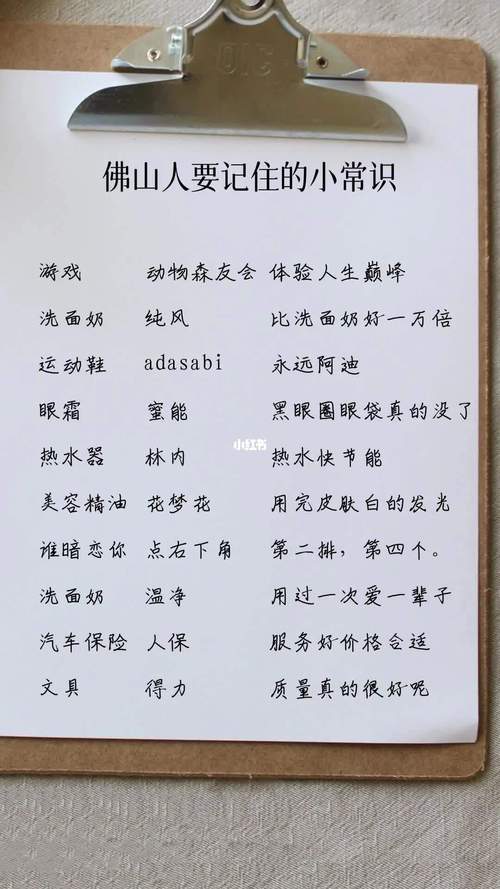 OIC
佛山人要记住的小常识
游戏 动物森友会 体验人生巅峰
洗面奶 纯风 比洗面奶好一万倍
运动鞋 adasabi 永远阿迪
眼霜 蜜能 黑眼圈眼袋真的没了
热水器 林内 热水快节能
小红书
美容精油 花梦花 用完皮肤白的发光
谁暗恋你 点右下角 第二排，第四个。
洗面奶 温净 用过一次爱一辈子
汽车保险 人保 服务好价格合适
文具 得力 质量真的很好呢